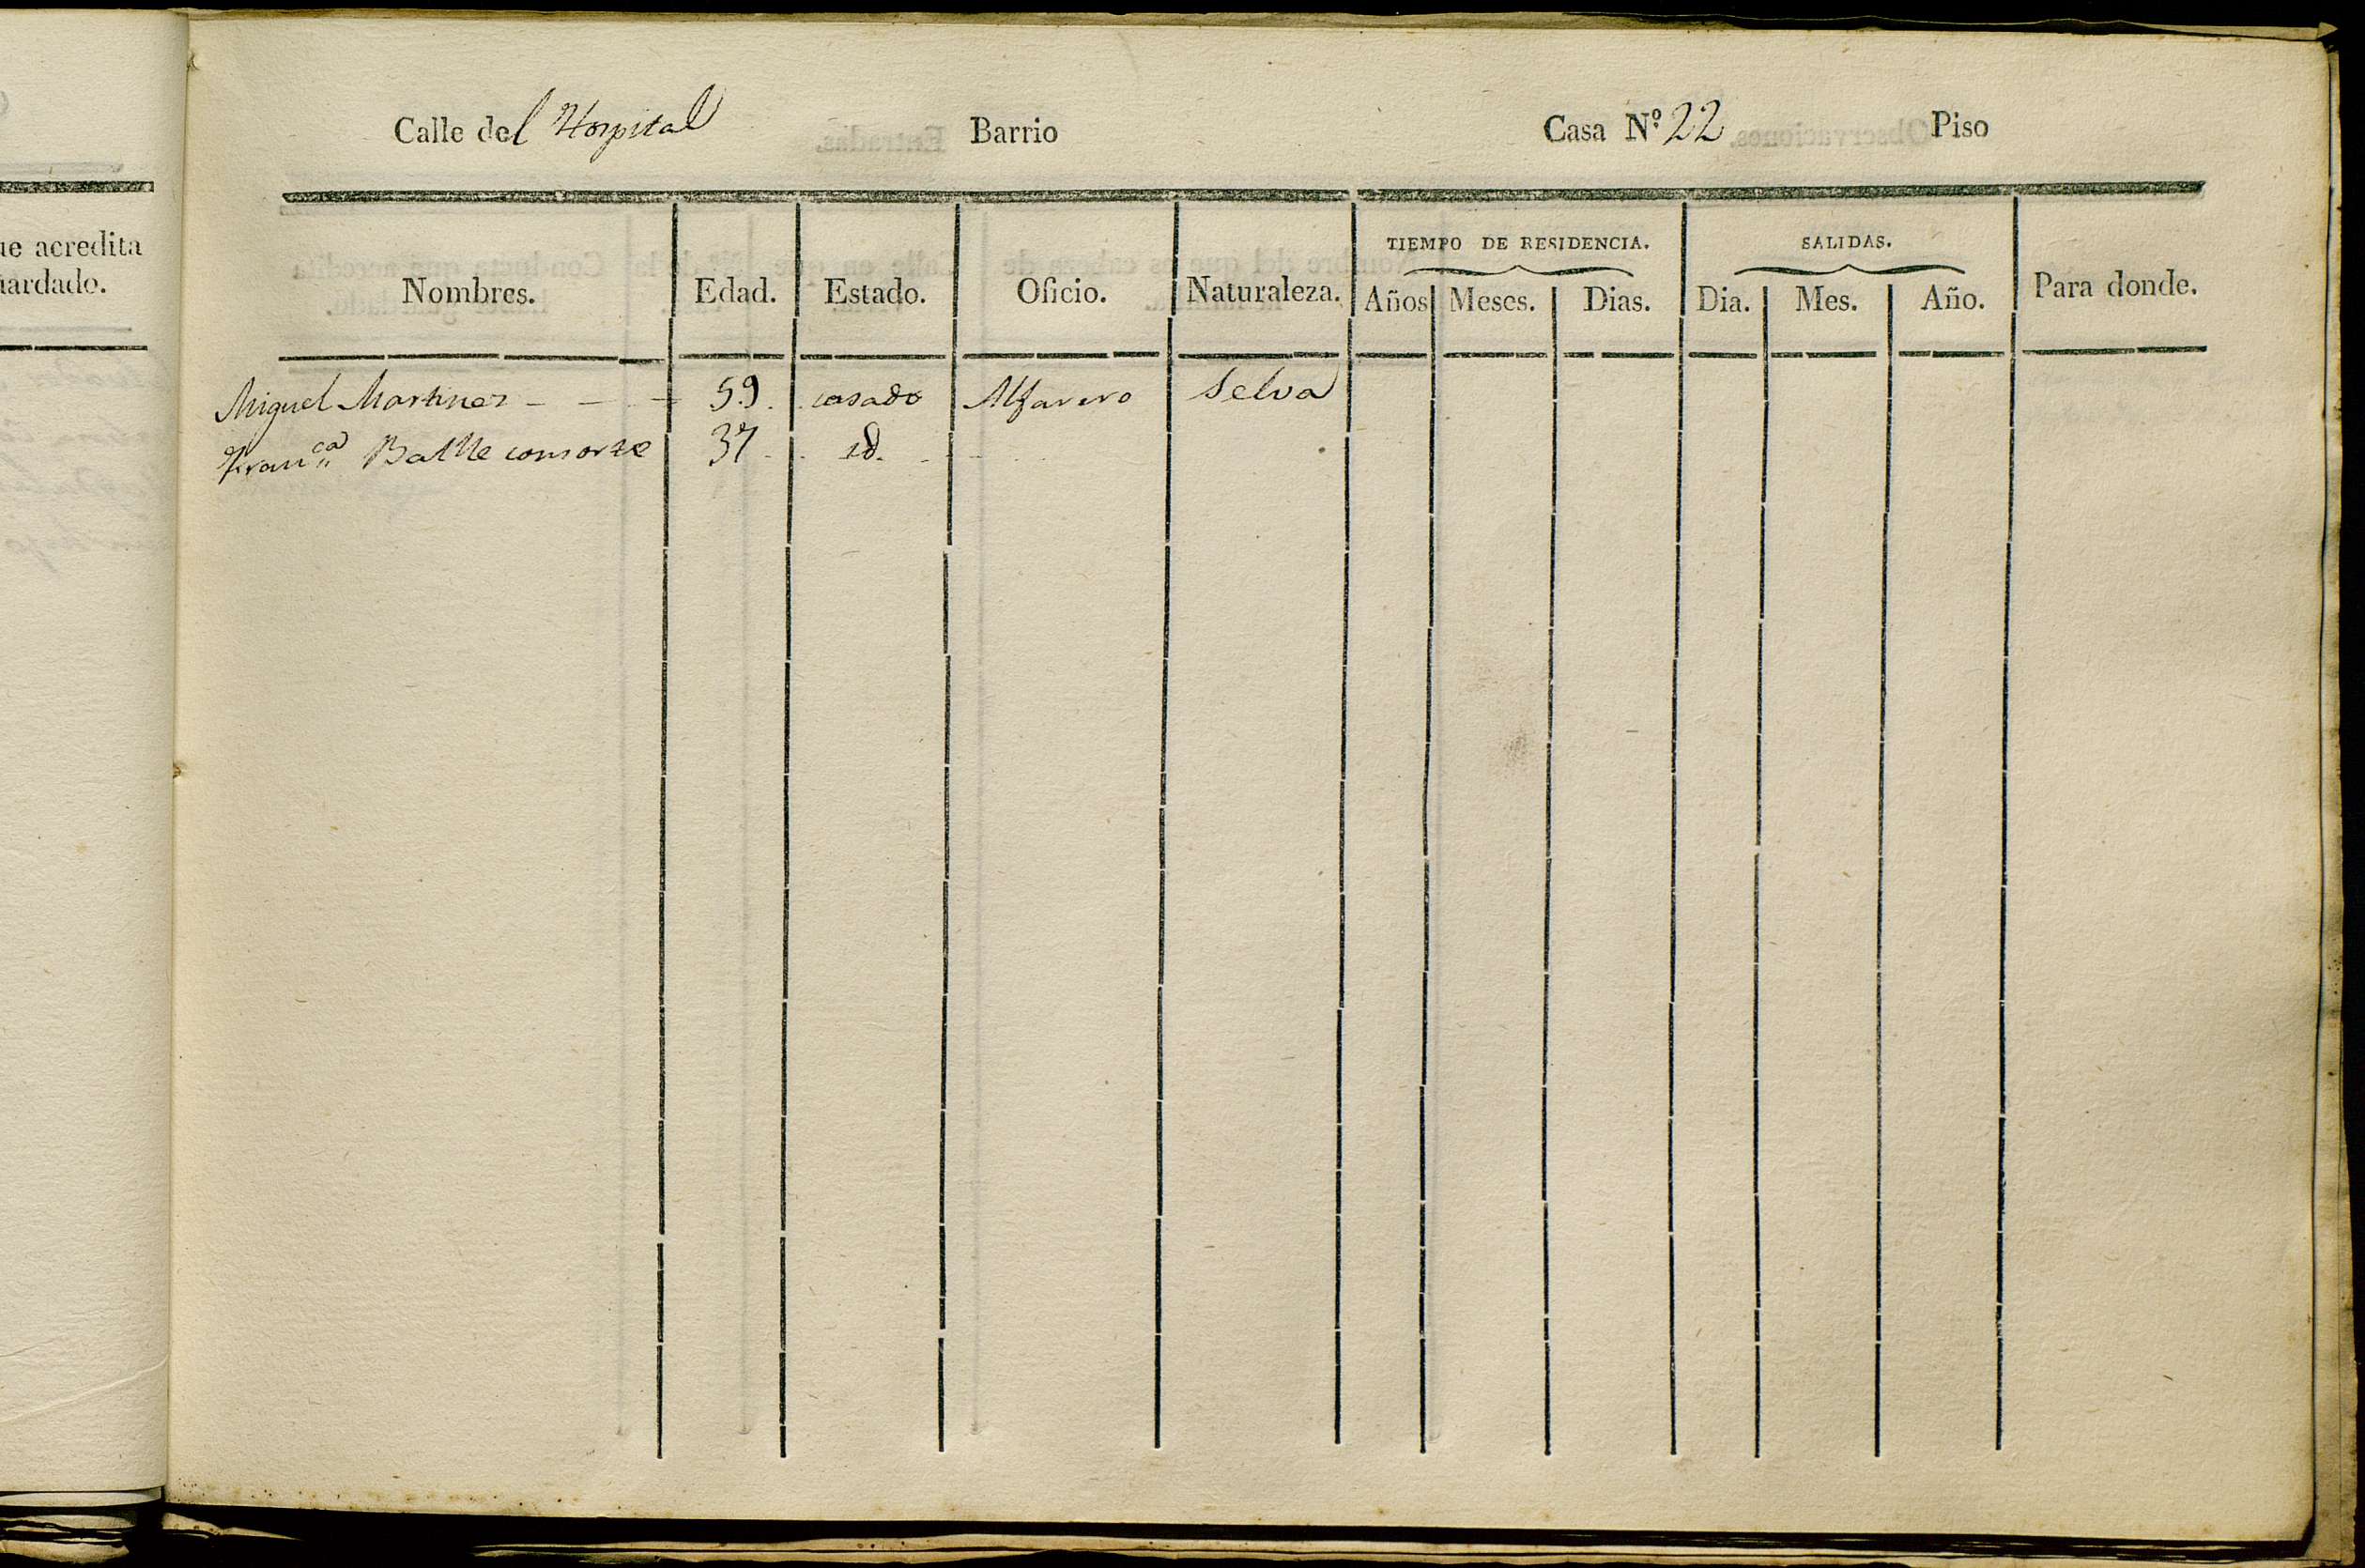 Calle del Hospital Barrio Casa Nº 22 Piso
ue acredita
uardado.
TIEMPO DE RESIDENCIA. SALIDAS.
Nombres. Edad. Estado. Oficio. Naturaleza. Años Meses. Dias. Dia. Mes. Año. Para donde.
Miguel Martinez - - - 59. casado Alfarero Selva
Fran.ca Batlle consorte 37 - . id.